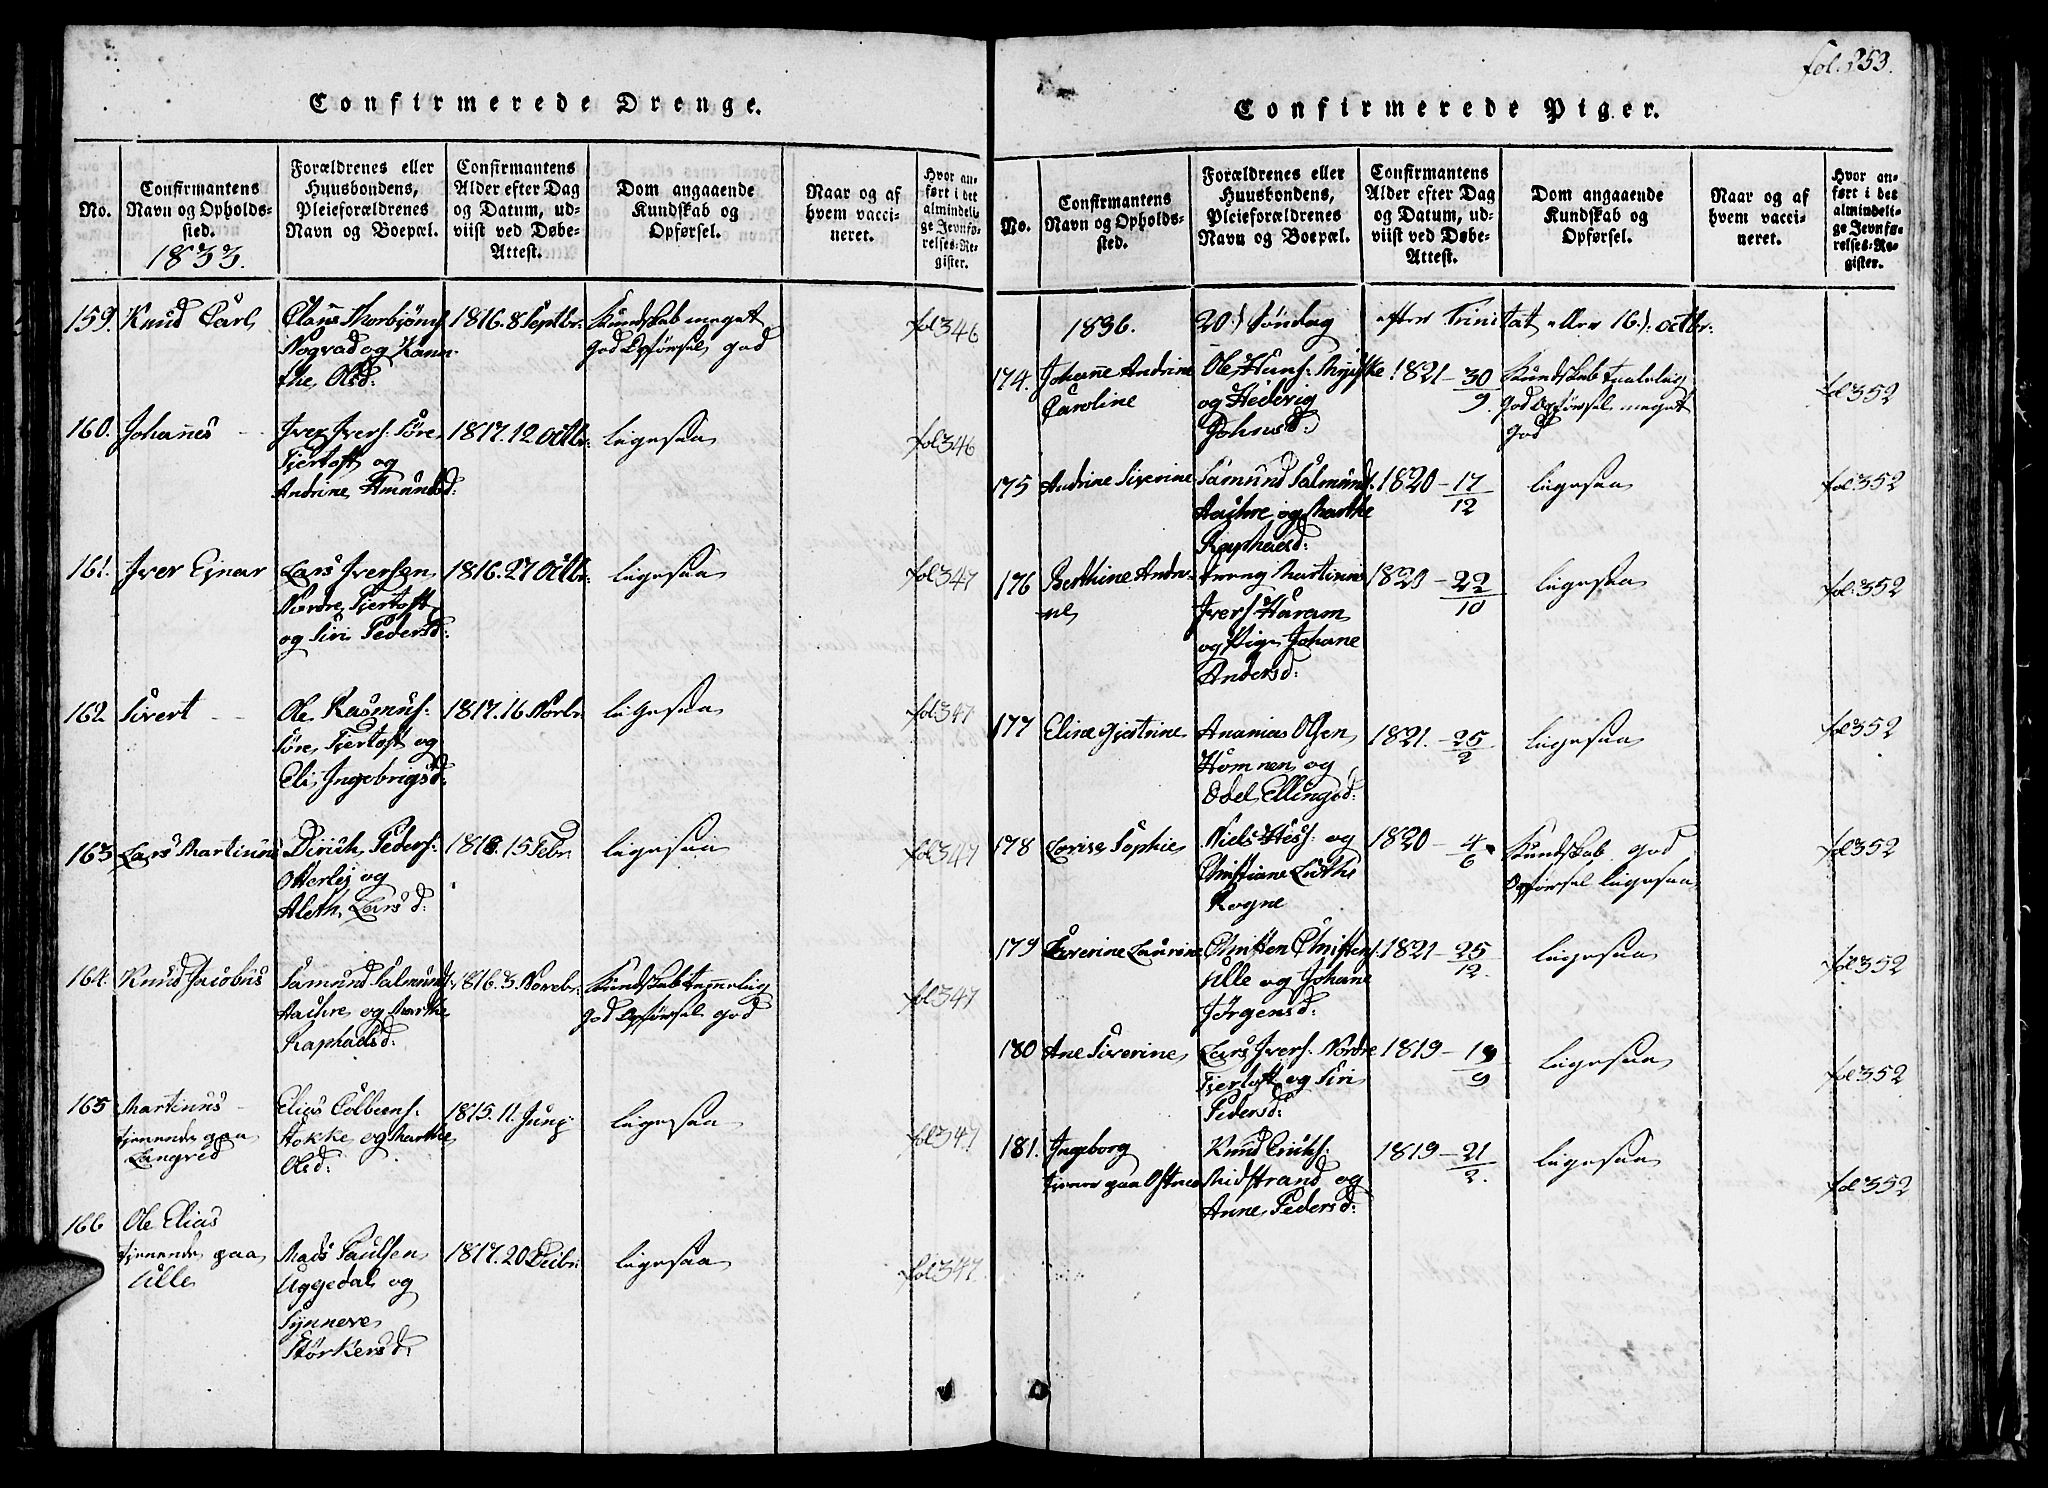 Confirmerede Drenge.
No.
Confirmantens
Navn og Opholds-
sted.
1833.
Forældrenes eller
Huusbondens,
Pleieforældrenes
Navn og Boepæl.
Confirmantens
Alder efter Dag
og Datum, ud-
viist ved Døbe-
Attest.
Dom angaaende
Kundskab og
Opførsel.
Naar og af
hvem vacci-
neret.
Hvor an-
ført i det
almindeli-
ge Jevnfø-
relses-Re-
gister.
159. Knud Carl Claus Thorbjörns 1816. 8 Septbr: Kundskab meget fol 346
Nogvad og Kann- god Opførsel god
the Olsd:
160. Johanes Iver Ivers: Söre 1817. 12 Octbr: ligesaa fol 346
Fjertoft og
Andrine Amundsd:
161. Iver Ejnar Lars Iversen 1816. 27 Octbr: ligesaa fol 347
Nordre Fjertoft
og Siri Pedersd:
162 Sivert Ole Rasmus: 1817. 16 Novbr: ligesaa fol 347
Söre Fjertoft og
Eli Ingebrigsd:
163 Lars Martinus Pedersˢ: 1818. 15 Febr: ligesaa fol 347
Otterlej og
Aleth Larsd:
164. Knud Jacobus Samund Salmunds 1816. 3 Novebr: Kundskab temmelig fol 347
Aachre og Marthe god Opførsel god
Raphaelsd:
165 Martinus Elias Colbens: 1815. 11 Junj ligesaa fol 347
tjenende paa Stokke og Marthe
Langved Olsd:
166 Ole Elias
tjenende paa Mads Paulsen 1817. 20 Decbr: ligesaa fol 347
Ulle Uggedal og
Synneve
Störkersd:
fol. 253.
Confirmerede Piger.
No.
Confirmantens
Navn og Opholds-
sted.
Forældrenes eller
Huusbondens,
Pleieforældrenes
Navn og Boepæl.
Confirmantens
Alder efter Dag
og Datum, ud-
viist ved Døbe-
Attest.
Dom angaaende
Kundskab og
Opførsel.
Naar og af
hvem vacci-
neret.
Hvor an-
ført i det
almindeli-
ge Jevnfø-
relses-Re-
gister.
1836. 20.) Söndag efter Trinitat eller 16.) Octbr:
174. Johanne Andrine Ole Hans: 1821 - 30/9. Kundskab taalelig fol 352
Caroline og Hedevig god Opførsel meget
Johnsd: god
175 Andrine Siverine Samund Salmunds: 1820 - 17/12 ligesaa fol: 352
Aachre og Marthe
Raphaelsd:
176 Berthine Andri- Dreng Martinus 1820 - 22/10 ligesaa fol: 352
ne Ivers Haram
og Pige Johane
Andersd:
177 Eline Gjertrine Ananias Olsen 1821. - 25/2 ligesaa fol 352
Homnen og
Odel Ellingsd:
178 Lovise Sophie Niels Hess: og 1820 - 4/6 Kundskab god fol 352
Christiane Luthe Opførsel ligesaa
Rogne
179 Severine Laurine Christen Christens: 1821 - 25/12. ligesaa fol 352
Ulle og Johane
Jörgensd:
180 Ane Siverine Lars Ivers: Nordre 1819 - 19/9 ligesaa fol 352
Fjertoft og Siri
Pedersd:
181. Ingeborg Knud Erichs: 1819 - 21/2. ligesaa fol 352
tjener paa Midstrand og
Anne Pedersd: